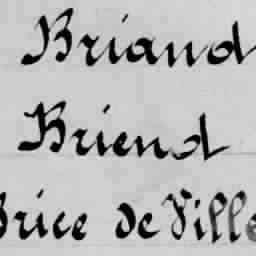 Briand
Briend
Brice de Ville